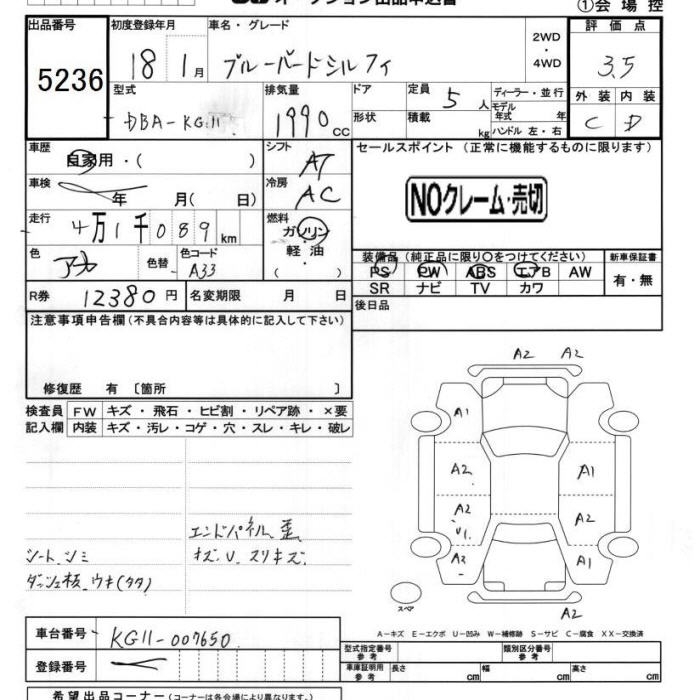 オークション出品申込書 ①会場控
出品番号 初度登録年月 車名・グレード 評価点
5236 18 1月 ブルーバードシルフィ 2WD ・ 4WD 3.5
型式 排気量 ドア 定員 5人 ディーラー・並行 外装 内装
DBA-KG11 1990cc 形状 積載 kg モデル年式 年 ハンドル 左・右 C D
車歴 シフト セールスポイント (正常に機能するものに限ります)
自家用・( ) AT
車検 冷房
年 月( 日) AC NOクレーム・売切
走行 燃料
4万1千089km ガソリン
軽・油
( )
色 色替 色コード 装備品 (純正品に限り○をつけてください) 新車保証書
A33 PS PW ABS エアB AW 有・無
SR ナビ TV カワ
R券 12380円 名変期限 月 日 後日品
注意事項申告欄 (不具合内容等は具体的に記入して下さい)
修復歴 有 〔箇所 〕
検査員 FW キズ・飛石・ヒビ割・リペア跡・×要
記入欄 内装 キズ・汚レ・コゲ・穴・スレ・キレ・破レ
エンドパネル歪
シートシミ キズ、U、スリキズ
ダッシュ板、ウキ(タタ)
A2 A2
A1
A2 A1
A2 U1 A2
A2 A1
A2
スペア
A-キズ E-エクボ U-凹み W-補修跡 S-サビ C-腐食 XX-交換済
車台番号 KG11-007650
登録番号
型式指定番号 参考 類別区分番号 参考
車庫証明用 参考 長さ cm 幅 cm 高さ cm
希望出品コーナー (コーナーは各会場により異なります。)